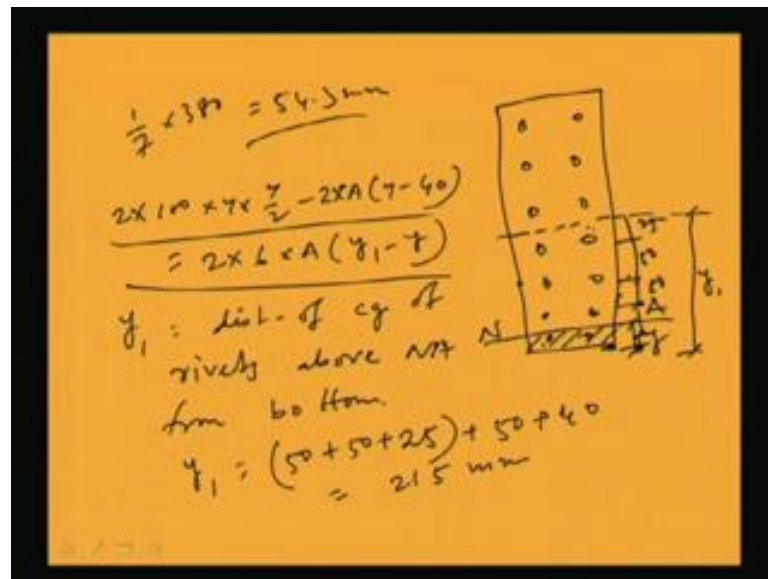 1/7 × 380 = 54.3 mm
2 × 100 × y × y/2 - 2 × A (y - 40)
= 2 × 6 × A (y₁ - y)
y₁ : dist. of cg of
rivets above NA
from bottom.
y₁ = (50 + 50 + 25) + 50 + 40
= 215 mm
N
A
y₁